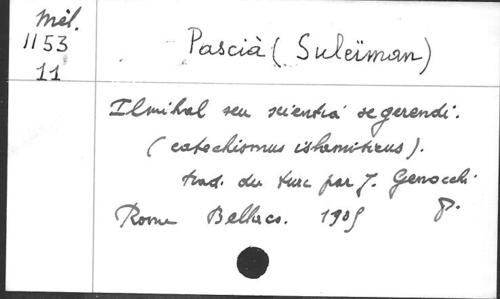 Mél.
1153
11
Pascià (Suleïman)
Ilmihal seu scientia se gerendi.
(catechismus islamiticus).
trad. du turc par J. Genocchi
Rome Bellucs. 1909 8º.